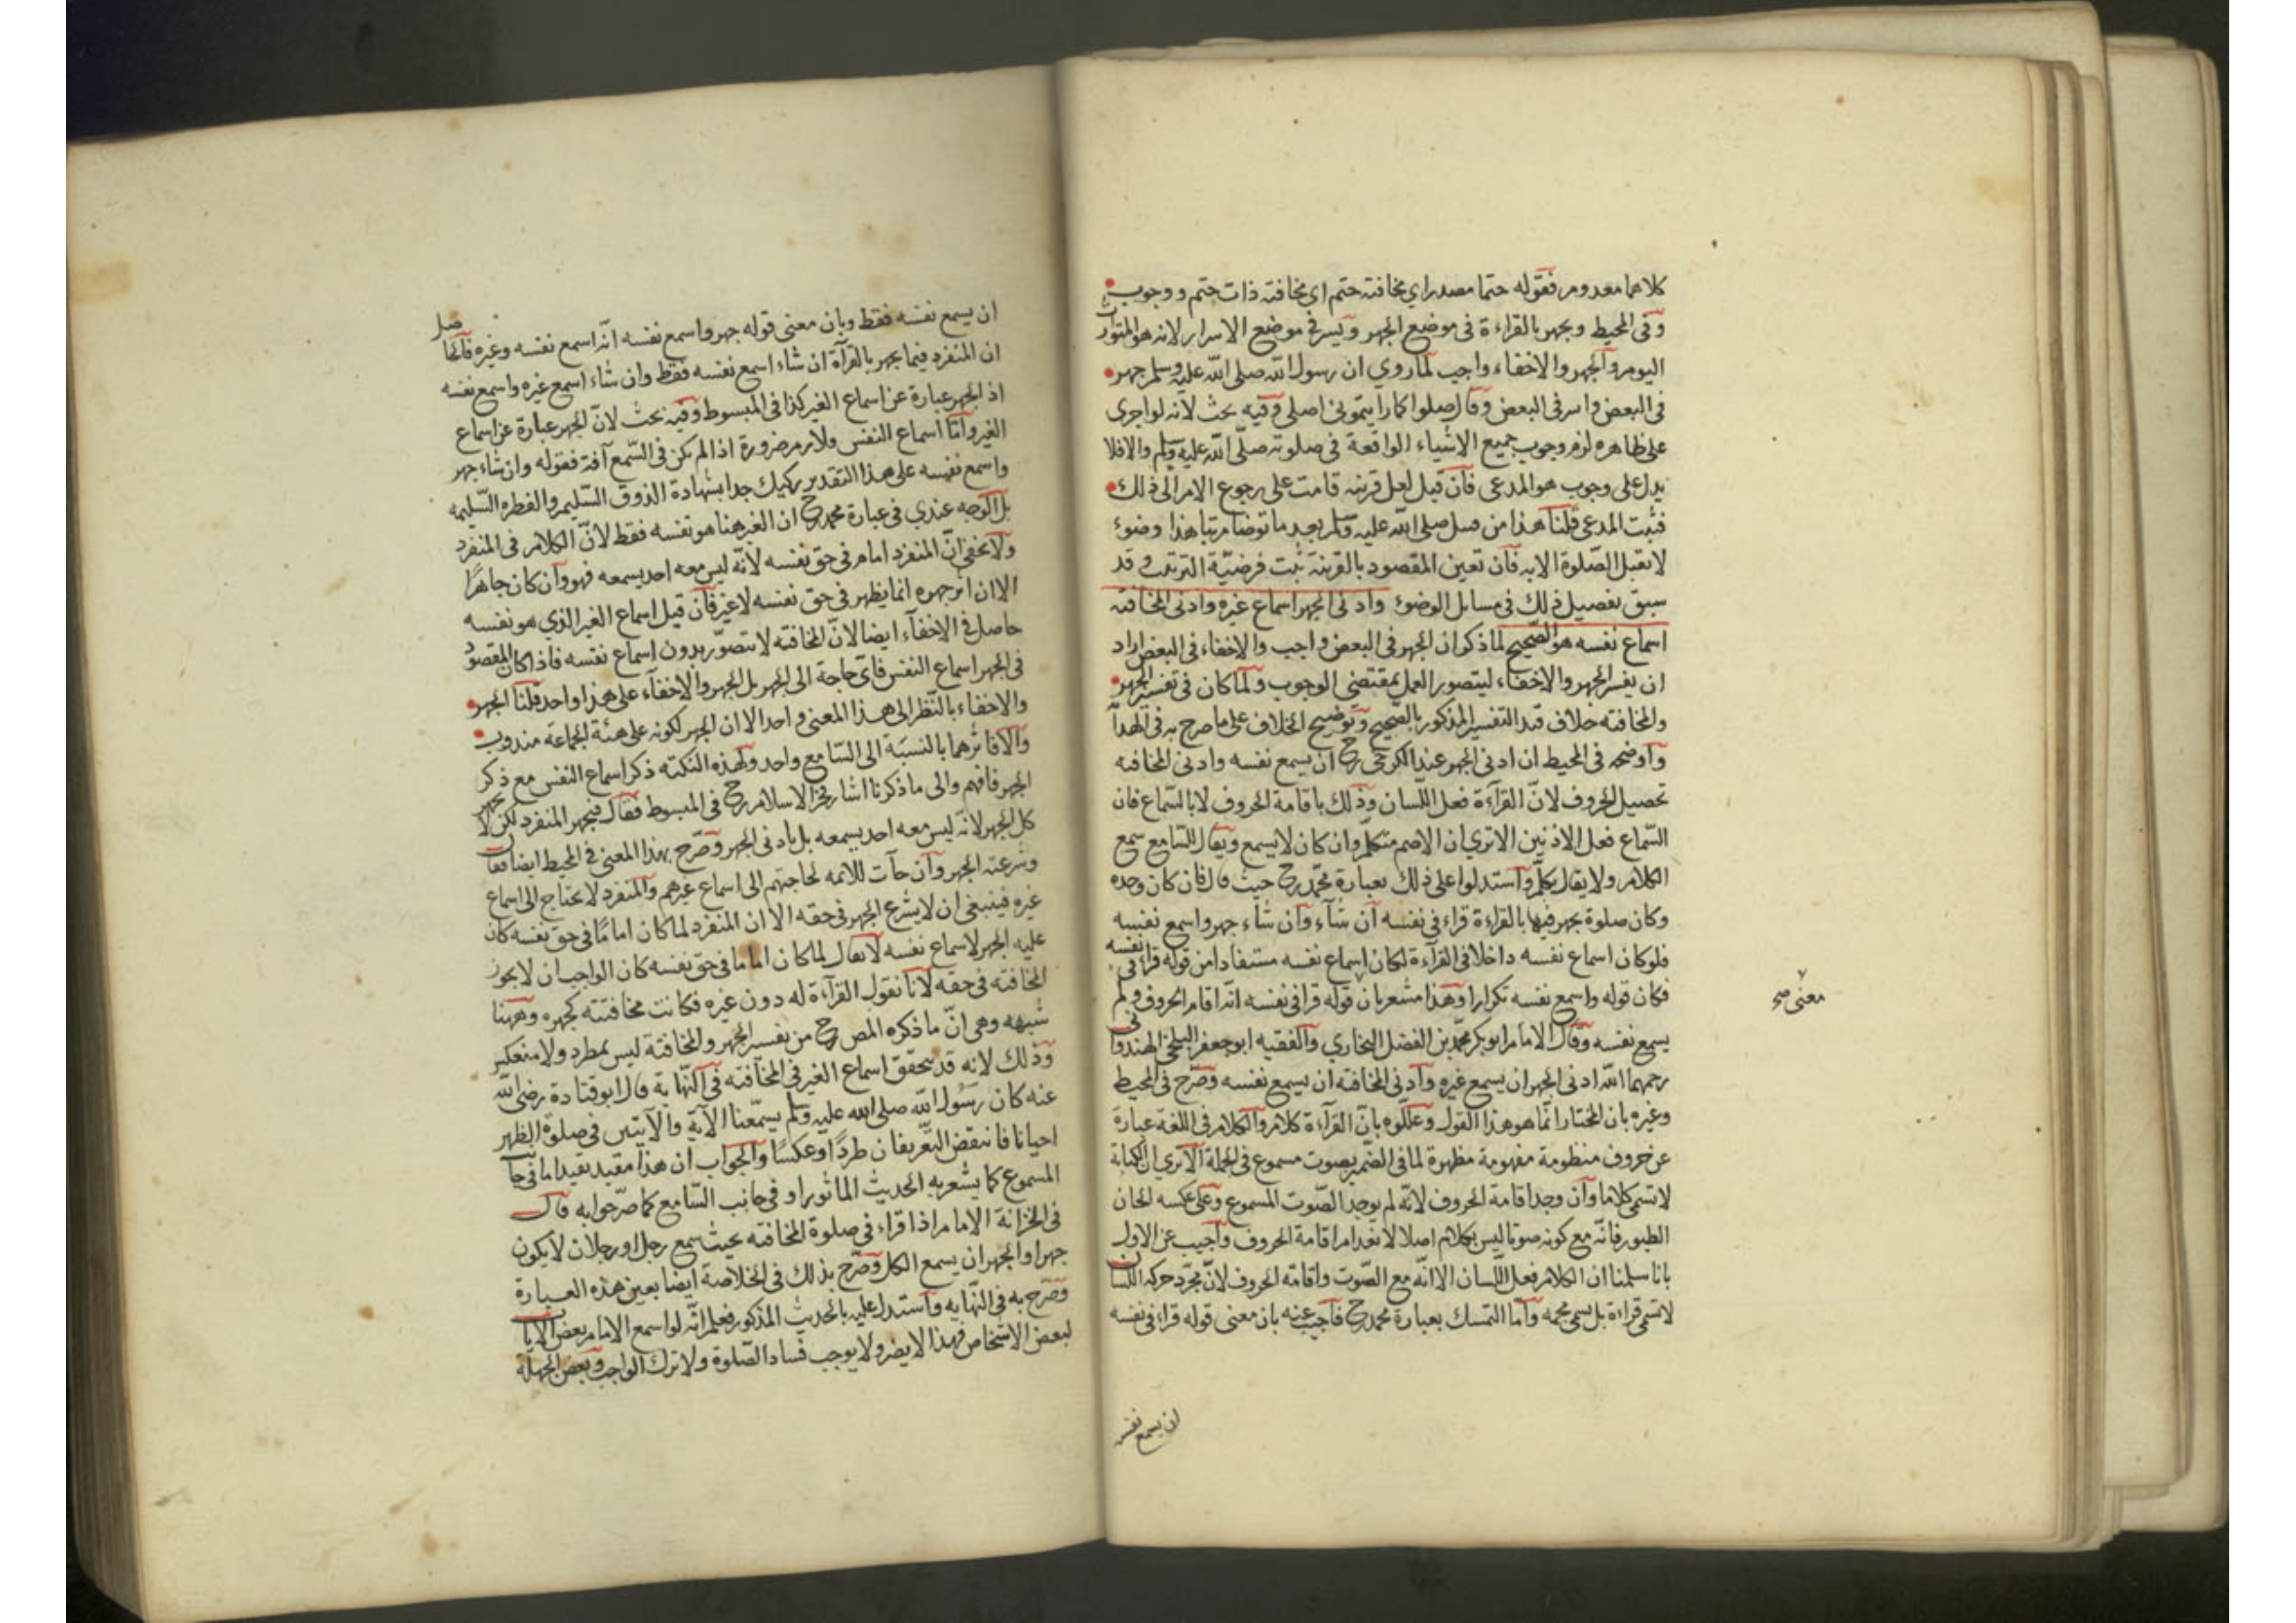 كلاهما معدوم فقوله حتما مصدر اي مخافتة حتم اي مخافتة ذات حتم ووجوب
وفي المحيط ويجهر بالقراءة في موضع الجهر ويسر في موضع الاسرار لانه هو المتوارث
اليوم والجهر والاخفاء واجب لما روي ان رسول الله صلى الله عليه وسلم جهر
في البعض واسر في البعض وقال صلوا كما رايتموني اصلي وفيه بحث لانه لو اجرى
على ظاهره لزم وجوب جميع الاشياء الواقعة في صلوته صلى الله عليه وسلم والا فلا
يدل على وجوب هو المدعى فان قيل لعل قرينة قامت على رجوع الامر الى ذلك
فثبت المدعى قلنا هذا من قبيل صلى الله عليه وسلم بعد ما توضا مرتبا هذا وضوء
لا تقبل الصلوة الا به فان تعين المقصود بالقرينة ثبت فرضية الترتيب وقد
سبق تفصيل ذلك في مسايل الوضوء وادنى الجهر اسماع غيره وادنى المخافتة
اسماع نفسه هو الصحيح لما ذكر ان الجهر في البعض واجب والاخفاء في البعض اراد
ان يفسر الجهر والاخفاء ليتصور العمل بمقتضى الوجوب ولما كان في تفسير الجهر
والمخافتة خلاف قيد التفسير المذكور بالصحيح وتوضيح الخلاف على ما صرح به في الهداية
واوضحه في المحيط ان ادنى الجهر عند الكرخي رح ان يسمع نفسه وادنى المخافتة
تحصيل الحروف لان القرآءة فعل اللسان وذلك باقامة الحروف لا بالسماع فان
السماع فعل الاذنين الا ترى ان الاصم متكلم وان كان لا يسمع ويقال للسامع سمع
الكلام ولا يقال تكلم واستدلوا على ذلك بعبارة محمد رح حيث قال فان كان وحده
وكان صلوة يجهر فيها بالقراءة قراء في نفسه ان شآء وان شاء جهر واسمع نفسه
فلو كان اسماع نفسه داخلا في القرآءة لكان اسماع نفسه مستفادا من قوله قرأ في نفسه
فكان قوله واسمع نفسه تكرارا وهذا مشعر بان قوله قرا في نفسه انه اقام الحروف ولم
معنى صح
يسمع نفسه وقال الامام ابو بكر محمد بن الفضل البخاري والفقيه ابو جعفر البلخي الهندواني
رحمهما الله ادنى الجهر ان يسمع غيره وادنى المخافتة ان يسمع نفسه وصرح في المحيط
وغيره بان المختار انما هو هذا القول وعللوه بان القرآءة كلام والكلام في اللغة عبارة
عن حروف منظومة مفهومة مظهرة لما في الضمير بصوت مسموع في الجملة الا ترى ان الكتابة
لا تسمى كلاما وان وجد اقامة الحروف لانه لم يوجد الصوت المسموع وعلى عكسه الحان
الطيور فانه مع كونه صوتا ليس بكلام اصلا لانعدام اقامة الحروف واجيب عن الاول
بانا سلمنا ان الكلام فعل اللسان الا انه مع الصوت واقامة الحروف لان مجرد حركة اللسان
لا تسمى قراءة بل تسمى مجمة واما التمسك بعبارة محمد رح فاجيب عنه بان معنى قوله قراء في نفسه
ان يسمع نفسه
ان يسمع نفسه فقط وبان معنى قوله جهر واسمع نفسه انه اسمع نفسه وغيره فالحاصل
ان المنفرد فيما يجهر بالقرآة ان شاء اسمع نفسه فقط وان شاء اسمع غيره واسمع نفسه
اذ الجهر عبارة عن اسماع الغير كذا في المبسوط وفيه بحث لان الجهر عبارة عن اسماع
الغير واما اسماع النفس ولازم ضرورة اذا لم تكن في السمع آفة فقوله وان شاء جهر
واسمع نفسه على هذا التقدير ركيك جدا بشهادة الذوق السليم والفطرة السليمة
بل الوجه عندي في عبارة محمد رح ان الغير هنا هو نفسه فقط لان الكلام في المنفرد
ولا يخفى ان المنفرد امام في حق نفسه لانه ليس معه احد يسمعه فهو وان كان جاهرا
الا ان اثر جهره انما يظهر في حق نفسه لا غير فان قيل اسماع الغير الذي هو نفسه
حاصل في الاخفآء ايضا لان المخافتة لا تتصور بدون اسماع نفسه فاذا كان المقصود
في الجهر اسماع النفس فاى حاجة الى الجهر بل الجهر والاخفآء على هذا واحد قلنا الجهر
والاخفاء بالنظر الى هذا المعنى واحد الا ان الجهر لكونه على هيئة الجماعة مندوب
والا فاثرهما بالنسبة الى السامع واحد ولهذه النكتة ذكر اسماع النفس مع ذكر
الجهر فافهم والى ما ذكرنا اشار فخر الاسلام رح في المبسوط فقال فيجهر المنفرد لكن لا يجهر
كل الجهر لانه ليس معه احد يسمعه بل بادنى الجهر وصرح بهذا المعنى في المحيط ايضا فقال
وشرعته الجهر وان جآت للائمه لحاجتهم الى اسماع غيرهم والمنفرد لا يحتاج الى اسماع
غيره فينبغي ان لا يشرع الجهر في حقه الا ان المنفرد لما كان اماما في حق نفسه كان
عليه الجهر لاسماع نفسه لا يقال لما كان اماما في حق نفسه كان الواجب ان لا يجوز
المخافتة في حقه لانا نقول القرآءة له دون غيره فكانت مخافتته كجهره وههنا
شبهه وهي ان ما ذكره المص رح من تفسير الجهر والمخافتة ليس بمطرد ولا منعكس
وذلك لانه قد يتحقق اسماع الغير في المخافتة في النهاية قال ابو قتادة رضى الله
عنه كان رسول الله صلى الله عليه وسلم يسمعنا الآية والآيتين في صلوة الظهر
احيانا فانتقض التعريفان طردا وعكسا والجواب ان هذا مقيد بقيد اما في جانب
المسموع كما يشعر به الحديث الماثور او في جانب السامع كما صرحوا به قال
في الخزانة الامام اذا قراء في صلوة المخافتة بحيث سمع رجل او رجلان لا يكون
جهرا والجهر ان يسمع الكل وصرح بذلك في الخلاصة ايضا بعين هذه العبارة
وصرح به في النهاية واستدل عليه بالحديث المذكور فعلم انه لو اسمع الامام بعض الايات
لبعض الاشخاص فهذا لا يضر ولا يوجب فساد الصلوة ولا ترك الواجب وبعض الجهلة